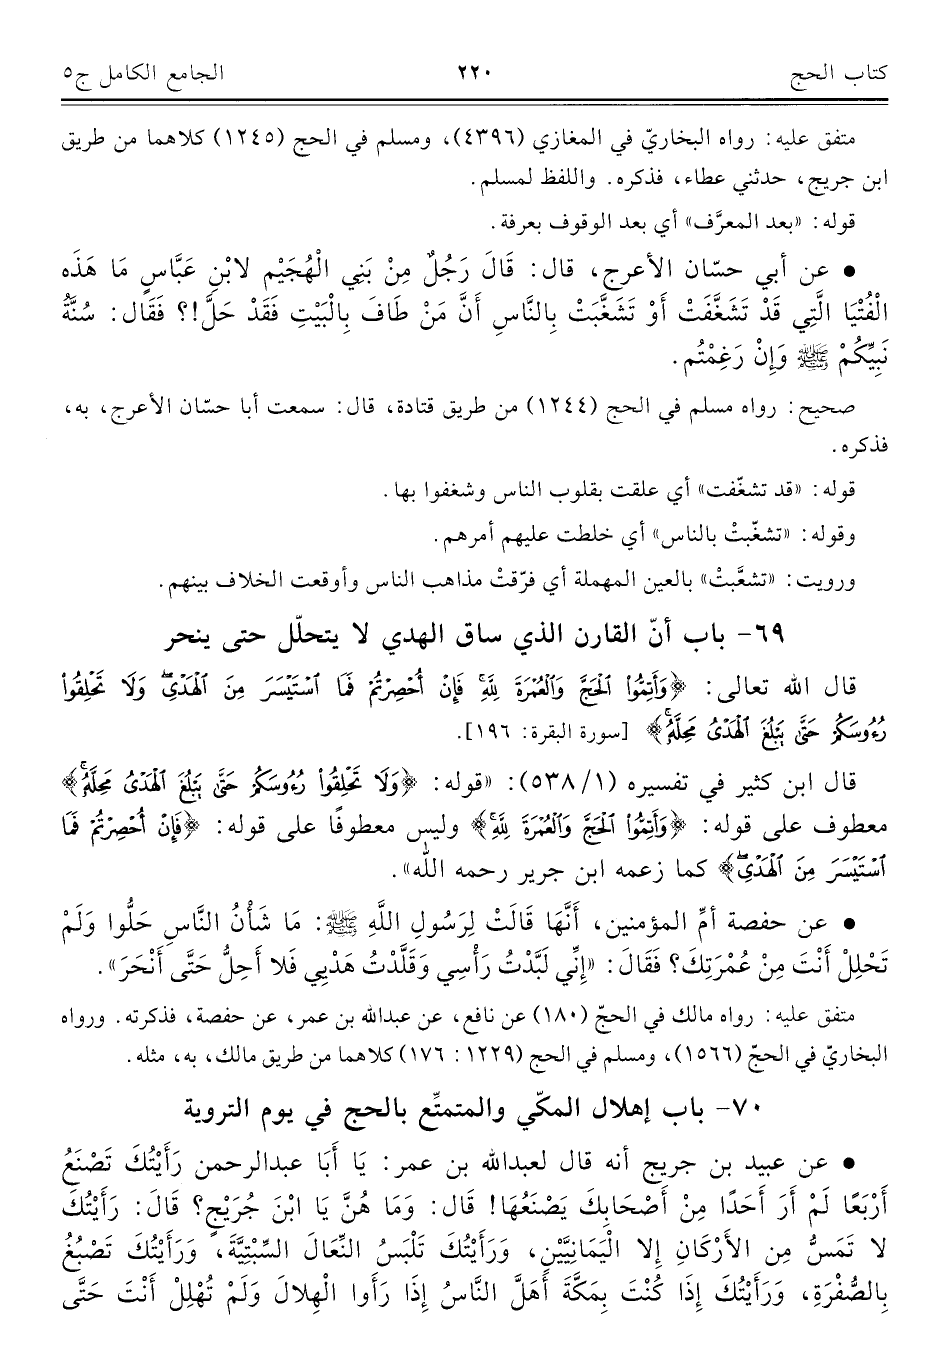 كتاب الحج ٢٢٠ الجامع الكامل ج٥
متفق عليه: رواه البخاريّ في المغازي (٤٣٩٦)، ومسلم في الحج (١٢٤٥) كلاهما من طريق
ابن جريج، حدثني عطاء، فذكره. واللفظ لمسلم.
قوله: «بعد المعرَّف» أي بعد الوقوف بعرفة.
• عن أبي حسّان الأعرج، قال: قَالَ رَجُلٌ مِنْ بَنِي الْهُجَيْمِ لابْنِ عَبَّاسٍ مَا هَذَه
الْفُتْيَا الَّتِي قَدْ تَشَغَّفَتْ أَوْ تَشَغَّبَتْ بِالنَّاسِ أَنَّ مَنْ طَافَ بِالْبَيْتِ فَقَدْ حَلَّ!؟ فَقَال: سُنَّةُ
نَبِيِّكُمْ ﷺ وَإِنْ رَغِمْتُم.
صحيح: رواه مسلم في الحج (١٢٤٤) من طريق قتادة، قال: سمعت أبا حسّان الأعرج، به،
فذكره.
قوله: «قد تشغّفت» أي علقت بقلوب الناس وشغفوا بها.
وقوله: «تشغّبتْ بالناس» أي خلطت عليهم أمرهم.
ورويت: «تشعَّبتْ» بالعين المهملة أي فرّقتْ مذاهب الناس وأوقعت الخلاف بينهم.
٦٩- باب أنّ القارن الذي ساق الهدي لا يتحلّل حتى ينحر
قال الله تعالى: ﴿وَأَتِمُّوا۟ ٱلْحَجَّ وَٱلْعُمْرَةَ لِلَّهِ ۚ فَإِنْ أُحْصِرْتُمْ فَمَا ٱسْتَيْسَرَ مِنَ ٱلْهَدْىِ ۖ وَلَا تَحْلِقُوا۟
رُءُوسَكُمْ حَتَّىٰ يَبْلُغَ ٱلْهَدْىُ مَحِلَّهُۥ ۚ﴾ [سورة البقرة: ١٩٦].
قال ابن كثير في تفسيره (١/ ٥٣٨): «قوله: ﴿وَلَا تَحْلِقُوا۟ رُءُوسَكُمْ حَتَّىٰ يَبْلُغَ ٱلْهَدْىُ مَحِلَّهُۥ ۚ﴾
معطوف على قوله: ﴿وَأَتِمُّوا۟ ٱلْحَجَّ وَٱلْعُمْرَةَ لِلَّهِ ۚ﴾ وليس معطوفًا على قوله: ﴿فَإِنْ أُحْصِرْتُمْ فَمَا
ٱسْتَيْسَرَ مِنَ ٱلْهَدْىِ ۖ﴾ كما زعمه ابن جرير رحمه الله».
• عن حفصة أمِّ المؤمنين، أَنَّهَا قَالَتْ لِرَسُولِ اللَّهِ ﷺ: مَا شَأْنُ النَّاسِ حَلُّوا وَلَمْ
تَحْلِلْ أَنْتَ مِنْ عُمْرَتِكَ؟ فَقَالَ: «إِنِّي لَبَّدْتُ رَأْسِي وَقَلَّدْتُ هَدْيِي فَلا أَحِلُّ حَتَّى أَنْحَرَ».
متفق عليه: رواه مالك في الحجّ (١٨٠) عن نافع، عن عبدالله بن عمر، عن حفصة، فذكرته. ورواه
البخاريّ في الحجّ (١٥٦٦)، ومسلم في الحج (١٢٢٩: ١٧٦) كلاهما من طريق مالك، به، مثله.
٧٠- باب إهلال المكّي والمتمتِّع بالحج في يوم التروية
• عن عبيد بن جريج أنه قال لعبدالله بن عمر: يَا أَبَا عبدالرحمن رَأَيْتُكَ تَصْنَعُ
أَرْبَعًا لَمْ أَرَ أَحَدًا مِنْ أَصْحَابِكَ يَصْنَعُهَا! قَال: وَمَا هُنَّ يَا ابْنَ جُرَيْجٍ؟ قَالَ: رَأَيْتُكَ
لا تَمَسُّ مِن الأَرْكَانِ إِلا الْيَمَانِيَّيْنِ، وَرَأَيْتُكَ تَلْبَسُ النِّعَالَ السِّبْتِيَّةَ، وَرَأَيْتُكَ تَصْبُغُ
بِالصُّفْرَةِ، وَرَأَيْتُكَ إِذَا كُنْتَ بِمَكَّةَ أَهَلَّ النَّاسُ إِذَا رَأَوا الْهِلالَ وَلَمْ تُهْلِلْ أَنْتَ حَتَّى